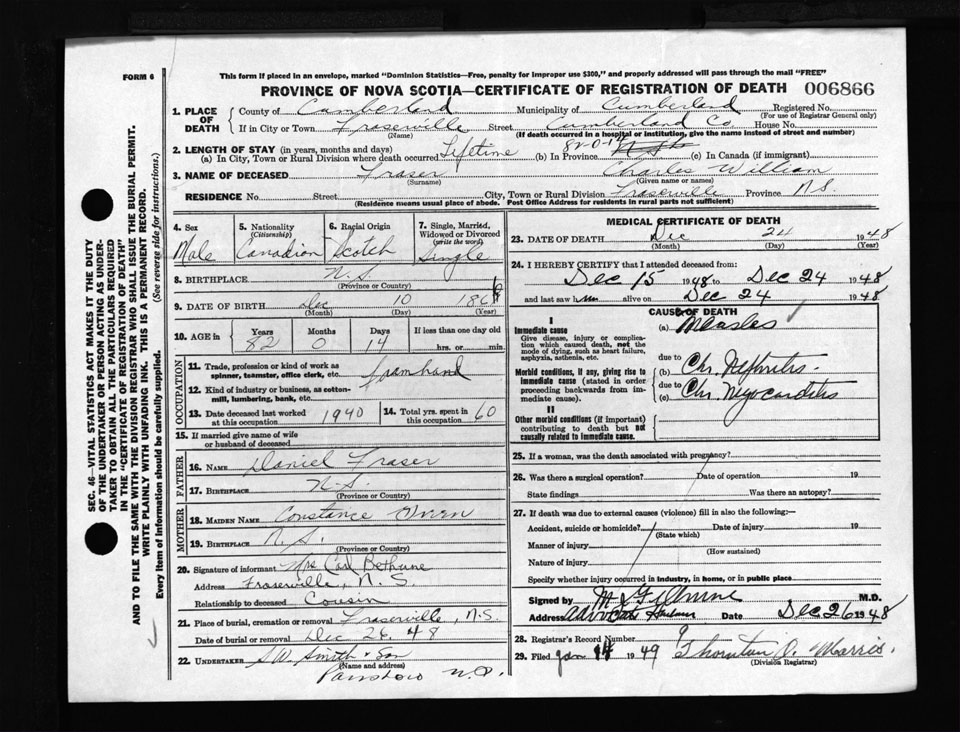 FORM 6
This form if placed in an envelope, marked "Dominion Statistics—Free, penalty for improper use $300," and properly addressed will pass through the mail "FREE"
PROVINCE OF NOVA SCOTIA—CERTIFICATE OF REGISTRATION OF DEATH 006866
1. PLACE OF DEATH County of Cumberland Municipality of Cumberland Registered No.
(For use of Registrar General only)
If in City or Town Fraserville Street Cumberland Co. House No.
(Name) (If death occurred in a hospital or institution, give the name instead of street and number)
2. LENGTH OF STAY (in years, months and days)
(a) In City, Town or Rural Division where death occurred Lifetime (b) In Province 82-0-14 (c) In Canada (if immigrant)
3. NAME OF DECEASED Fraser Charles William
(Surname) (Given name or names)
RESIDENCE No. Street City, Town or Rural Division Fraserville Province N.S.
(Residence means usual place of abode. Post Office Address for residents in rural parts not sufficient)
4. Sex Male
5. Nationality (Citizenship) Canadian
6. Racial Origin Scotch
7. Single, Married, Widowed or Divorced (write the word) Single
8. BIRTHPLACE N.S.
(Province or Country)
9. DATE OF BIRTH Dec 10 1866
(Month) (Day) (Year)
10. AGE in Years 82 Months 0 Days 14 If less than one day old hrs. or min.
OCCUPATION
11. Trade, profession or kind of work as spinner, teamster, office clerk, etc. framhand
12. Kind of industry or business, as cotton-mill, lumbering, bank, etc.
13. Date deceased last worked at this occupation 1940 14. Total yrs. spent in this occupation 60
15. If married give name of wife or husband of deceased
FATHER
16. NAME Daniel Fraser
17. BIRTHPLACE N.S.
(Province or Country)
MOTHER
18. MAIDEN NAME Constance
19. BIRTHPLACE N.S.
(Province or Country)
20. Signature of informant Mrs Carl Bethune
Address Fraserville, N.S.
Relationship to deceased Cousin
21. Place of burial, cremation or removal Fraserville, N.S.
Date of burial or removal Dec 26 48
22. UNDERTAKER S.W. Smith & Son
(Name and address)
N.S.
MEDICAL CERTIFICATE OF DEATH
23. DATE OF DEATH Dec 24 1948
(Month) (Day) (Year)
24. I HEREBY CERTIFY that I attended deceased from:
Dec 15 1948 to Dec 24 1948
and last saw him alive on Dec 24 1948
CAUSE OF DEATH
I
Immediate cause (a) Measles
Give disease, injury or complication which caused death, not the mode of dying, such as heart failure, asphyxia, asthenia, etc.
due to
Morbid conditions, if any, giving rise to immediate cause (stated in order proceeding backwards from immediate cause). (b) Chr. Nefritis.
due to
(c) Chr. Myocarditis
II
Other morbid conditions (if important) contributing to death but not causally related to immediate cause.
25. If a woman, was the death associated with pregnancy?
26. Was there a surgical operation? Date of operation 19
State findings Was there an autopsy?
27. If death was due to external causes (violence) fill in also the following:—
Accident, suicide or homicide? Date of injury 19
(State which)
Manner of injury
(How sustained)
Nature of injury
Specify whether injury occurred in industry, in home, or in public place
Signed by M.D.
Address Advocate Harbour Date Dec 26 1948
28. Registrar's Record Number 9
29. Filed Jan 14 1949 Thornton Morris.
(Division Registrar)
SEC. 46—VITAL STATISTICS ACT MAKES IT THE DUTY
OF THE UNDERTAKER OR PERSON ACTING AS UNDER-
TAKER TO OBTAIN ALL THE PARTICULARS REQUIRED
IN THE "CERTIFICATE OF REGISTRATION OF DEATH"
AND TO FILE THE SAME WITH THE DIVISION REGISTRAR WHO SHALL ISSUE THE BURIAL PERMIT.
WRITE PLAINLY WITH UNFADING INK. THIS IS A PERMANENT RECORD.
Every item of information should be carefully supplied. (See reverse side for instructions.)